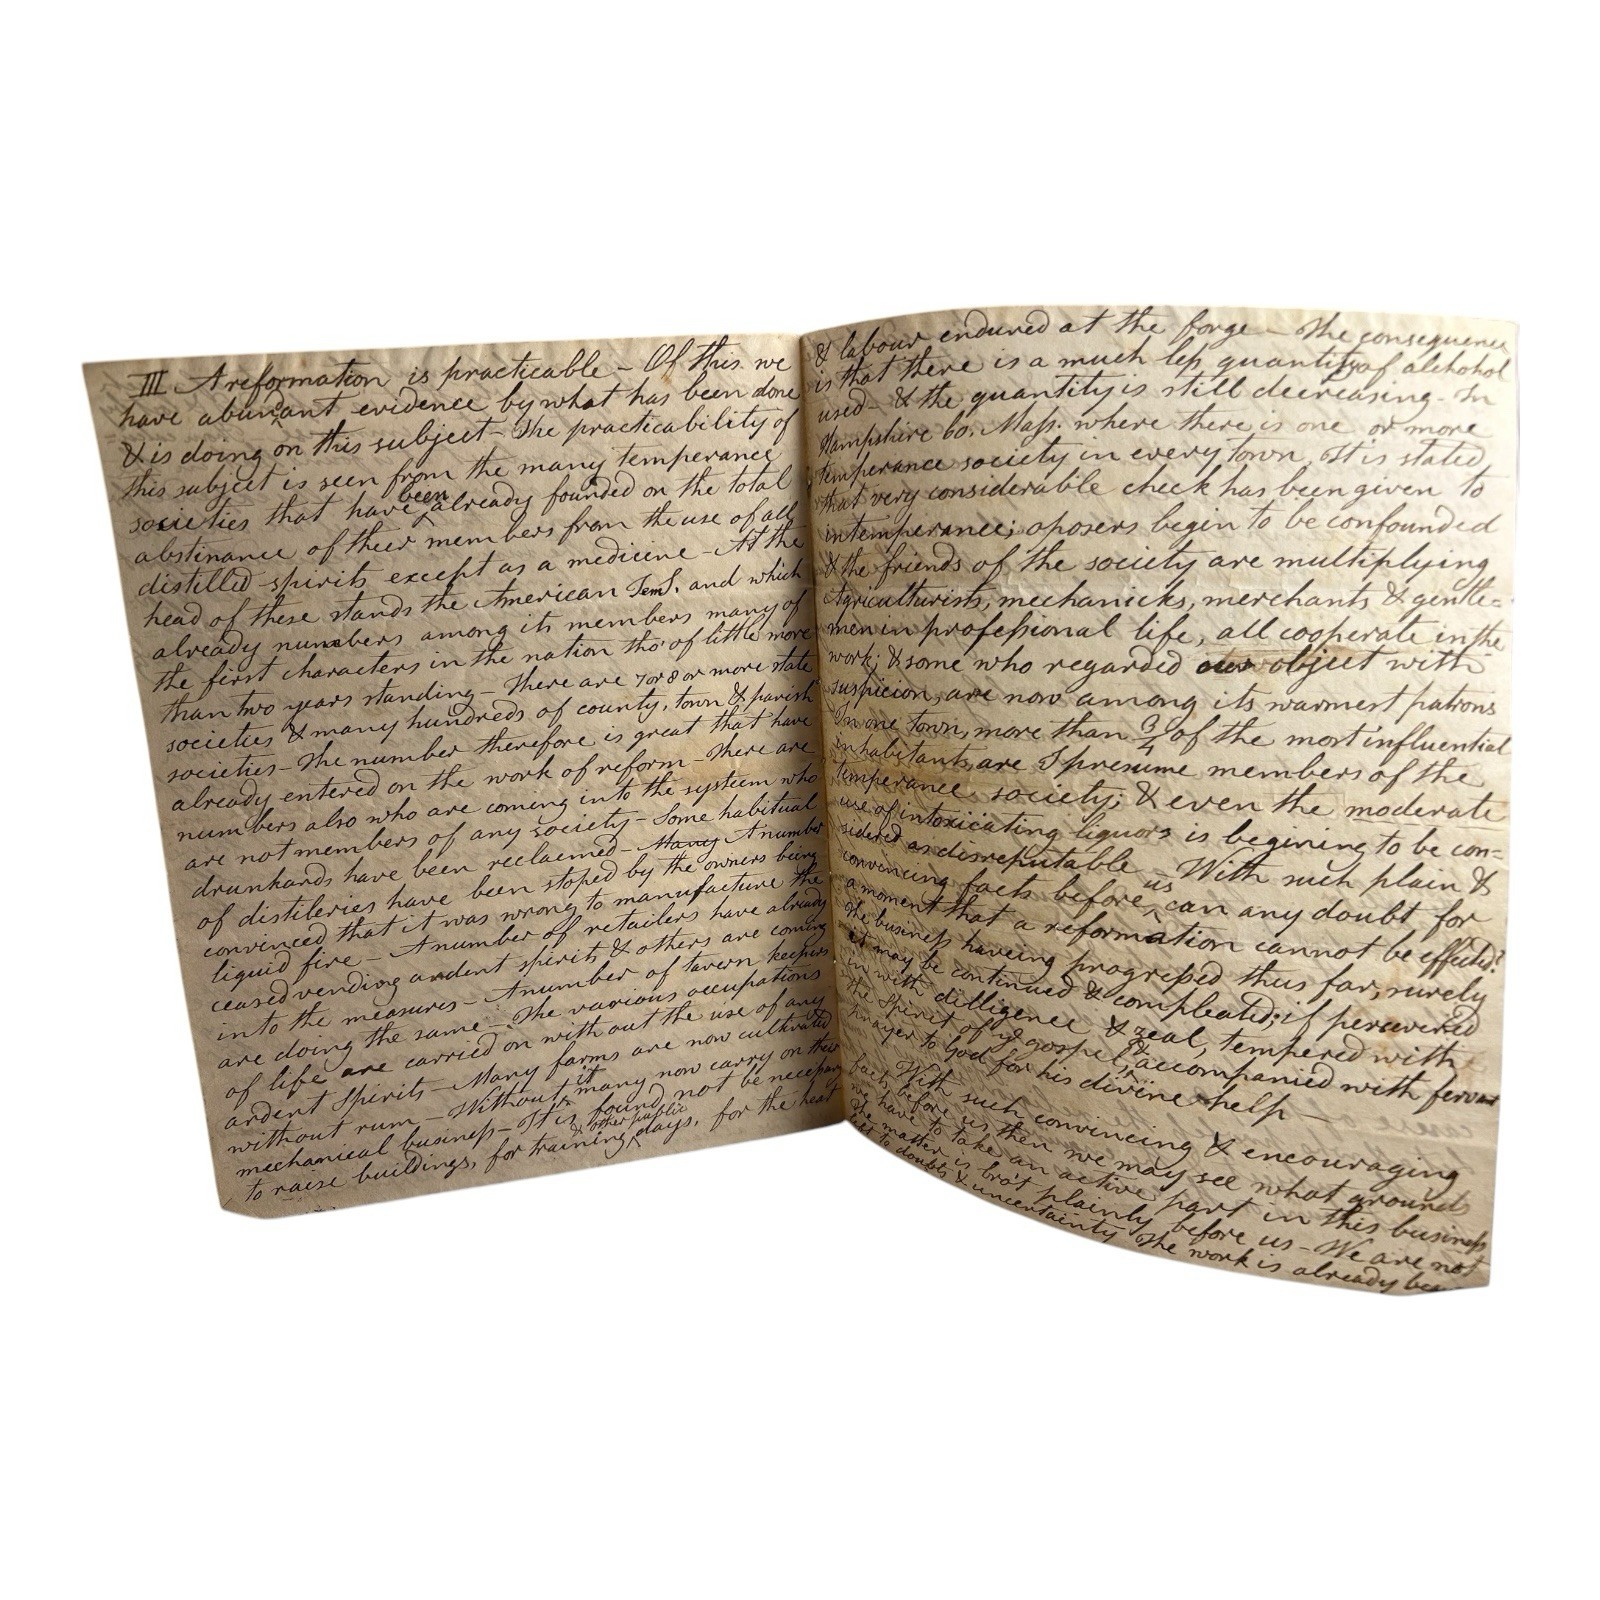 III A reformation is practicable - Of this we
have abundant evidence by what has been done
& is doing on this subject - The practicability of
this subject is seen from the many temperance
societies that have been already founded on the total
abstinance of their members from the use of all
distilled spirits except as a medicine - At the
head of these stands the American Tem S. and which
already numbers among its members many of
the first characters in the nation tho' of little more
than two years standing - There are 7 or 8 or more state
societies & many hundreds of county, town & parish
societies - The number therefore is great that have
already entered on the work of reform - There are
numbers also who are coming into the system who
are not members of any society - Some habitual
drunkards have been reclaimed - Many A number
of distileries have been stoped by the owners being
convinced that it was wrong to manufacture the
liquid fire - A number of retailers have already
ceased vending ardent spirits & others are coming
into the measures - A number of tavern keepers
are doing the same - The various occupations
of life are carried on with out the use of any
ardent spirits - Many farms are now cultivated
without rum - Without it many now carry on their
mechanical business - It is found not be necessary
to raise buildings, for training & other public days, for the heat
& labour endured at the forge - The consequence
is that there is a much less quantity of alchohol
used - & the quantity is still decreasing - In
Hampshire Co. Mass. where there is one or more
temperance society in every town, It is stated
that very considerable check has been given to
intemperance; oposers begin to be confounded
& the friends of the society are multiplying
Agriculturists, mechanicks, merchants & gentle=
men in professional life, all cooperate in the
work; & some who regarded our object with
suspicion, are now among its warmest patrons
In one town, more than 3/4 of the most influential
inhabitants, are I presume members of the
temperance society; & even the moderate
use of intoxicating liquors is begining to be con=
sidered as disreputable - With such plain &
convincing facts before us can any doubt, for
a moment that a reformation cannot be effected?
The business haveing progressed thus far, surely
it may be continued & compleated; if persevered
in with dilligence & zeal, tempered with
the Spirit of ye gospel, & accompanied with fervent
prayer to God for his divine help
With such convincing & encouraging
facts before us then we may see what grounds
we have to take an active part in this business
The matter is bro't plainly before us - We are not
left to doubts & uncertainty The work is already